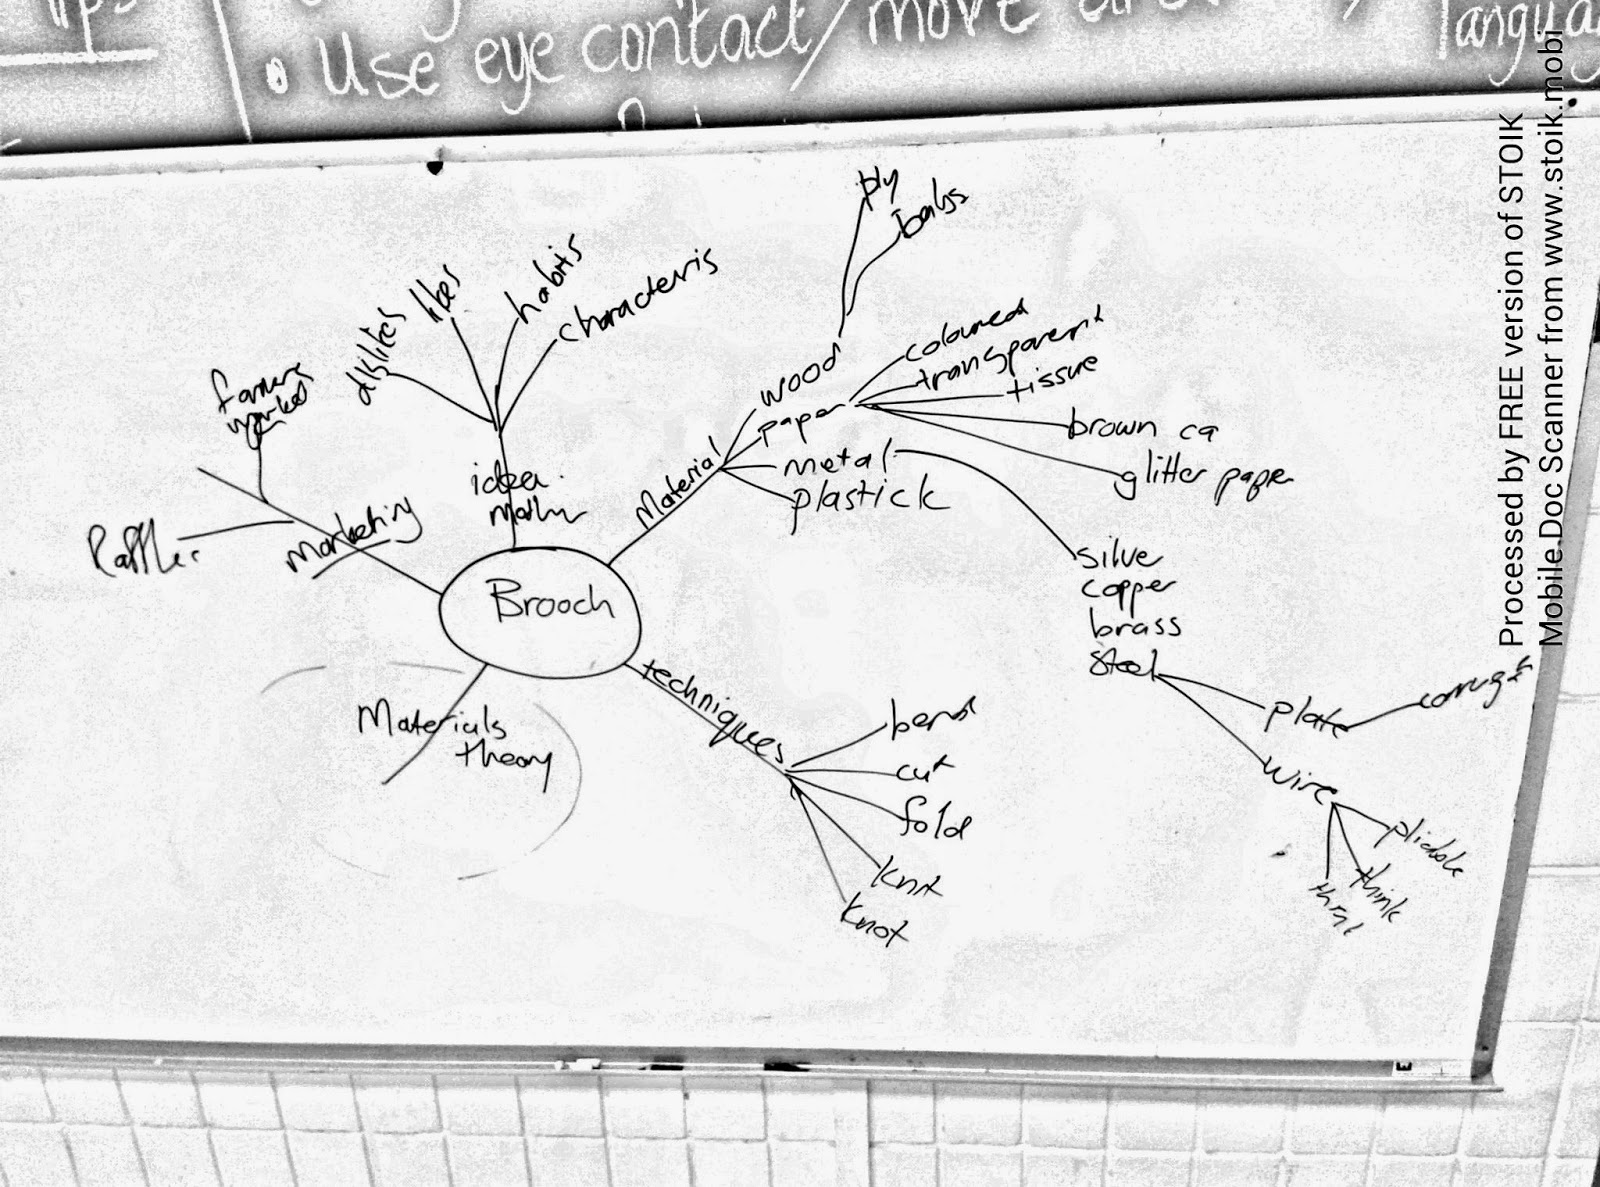 • Use eye contact/move
ply
balss
habits
likes
characteris
coloured
transparent
tissue
wood
paper
farmers
market
brown ca
metal
glitter paper
plastick
Material
idea
marketing
Raffle
silve
copper
brass
steel
Brooch
techniques
Materials
theory
plate
corrugt
bend
cut
fold
knit
knot
wire
pliable
think
Processed by FREE version of STOIK
Mobile Doc Scanner from www.stoik.mobi